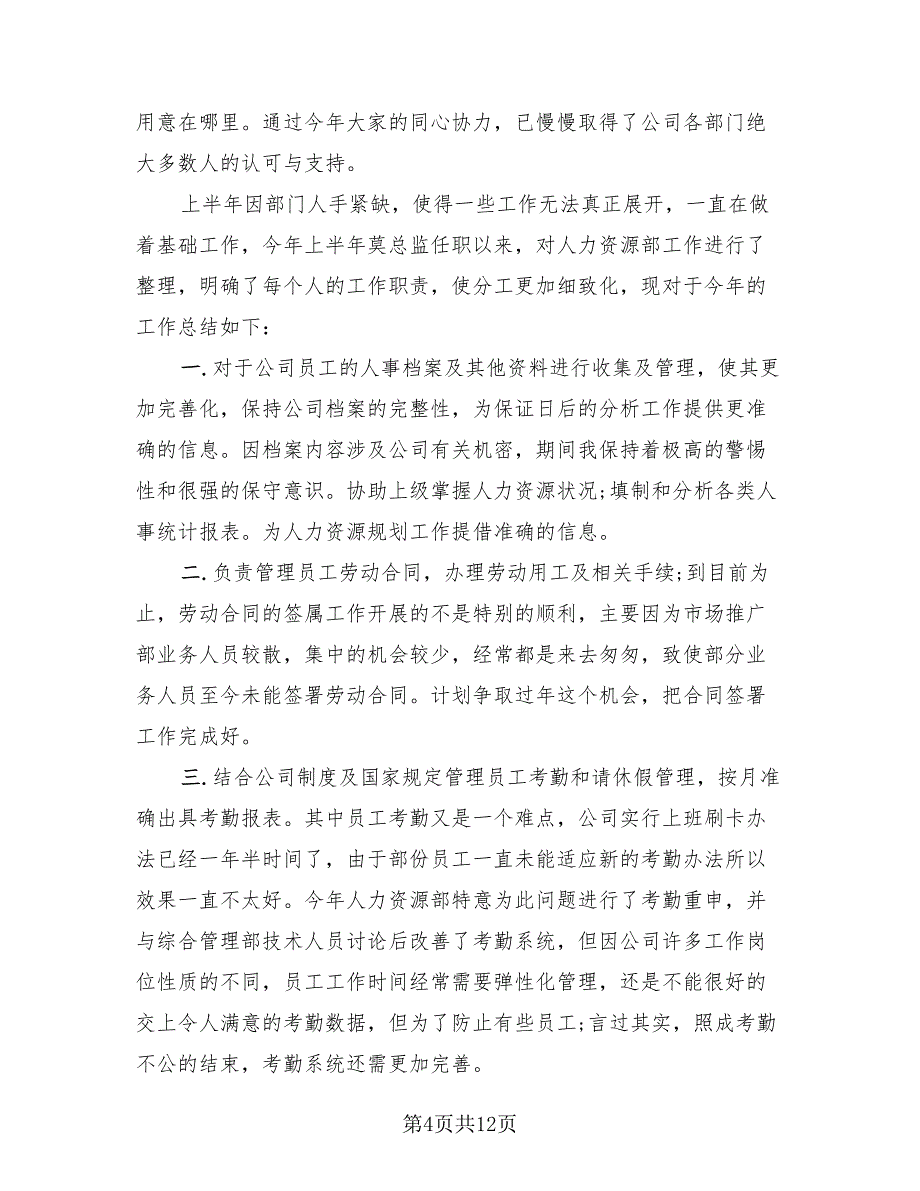 用意在哪里。通过今年大家的同心协力，已慢慢取得了公司各部门绝
大多数人的认可与支持。
上半年因部门人手紧缺，使得一些工作无法真正展开，一直在做
着基础工作，今年上半年莫总监任职以来，对人力资源部工作进行了
整理，明确了每个人的工作职责，使分工更加细致化，现对于今年的
工作总结如下：
一.对于公司员工的人事档案及其他资料进行收集及管理，使其更
加完善化，保持公司档案的完整性，为保证日后的分析工作提供更准
确的信息。因档案内容涉及公司有关机密，期间我保持着极高的警惕
性和很强的保守意识。协助上级掌握人力资源状况;填制和分析各类人
事统计报表。为人力资源规划工作提借准确的信息。
二.负责管理员工劳动合同，办理劳动用工及相关手续;到目前为
止，劳动合同的签属工作开展的不是特别的顺利，主要因为市场推广
部业务人员较散，集中的机会较少，经常都是来去匆匆，致使部分业
务人员至今未能签署劳动合同。计划争取过年这个机会，把合同签署
工作完成好。
三.结合公司制度及国家规定管理员工考勤和请休假管理，按月准
确出具考勤报表。其中员工考勤又是一个难点，公司实行上班刷卡办
法已经一年半时间了，由于部份员工一直未能适应新的考勤办法所以
效果一直不太好。今年人力资源部特意为此问题进行了考勤重申，并
与综合管理部技术人员讨论后改善了考勤系统，但因公司许多工作岗
位性质的不同，员工工作时间经常需要弹性化管理，还是不能很好的
交上令人满意的考勤数据，但为了防止有些员工;言过其实，照成考勤
不公的结束，考勤系统还需更加完善。
第4页共12页